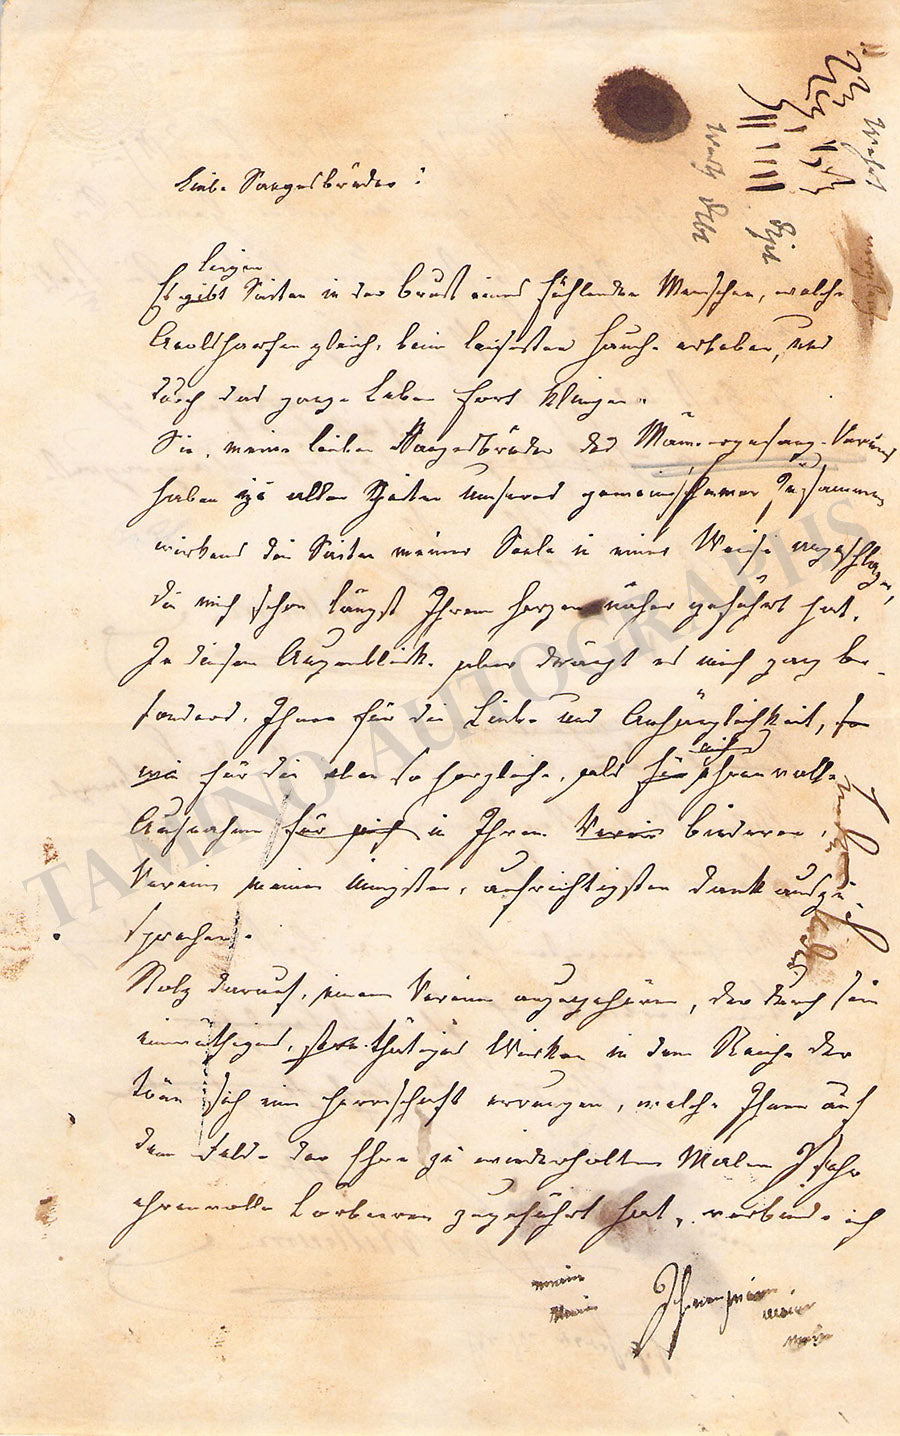 Liebe Sangesbrüder!
liegen
Es gibt Saiten in der Brust eines fühlenden Menschen, welche
Aeolsharfen gleich, beim leisesten Hauche erbeben, und
durch das ganze Leben fort klingen.
Sie, meine lieben Sangesbrüder des Männergesang-Vereins
haben zu allen Zeiten unseres gemeinschamen Zusammen
wirkens die Saiten meiner Seele in einer Weise angeschlagen,
die mich schon längst Ihrem Herzen näher geführt hat.
In diesem Augenblicke aber drängt es mich ganz be-
sonders, Ihnen für die Liebe und Anhänglichkeit, so
wie für die eben so herzliche, als für mich ehrenvolle
Aufnahme für mich in Ihrem Verein biederen,
Vereine meinen innigsten, aufrichtigsten Dank auszu-
sprechen.
Stolz darauf, einem Vereine anzugehören, der durch sein
einmüthiges, thätiges Wirken in dem Reiche der
Töne sich eine Herrschaft errungen, welche Ihnen auf
dem Felde der Ehre zu wiederholten Malen sehr
ehrenvolle Lorbeeren zugeführt hat, verbinde ich
mein
mein
mein
mein
TAMINO AUTOGRAPHS